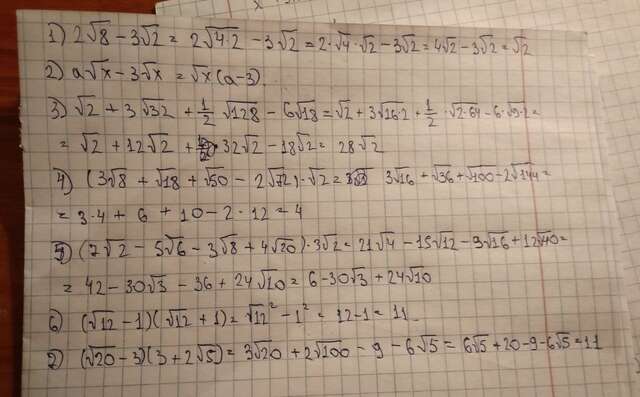 1) 2√8 - 3√2 = 2√4·2 - 3√2 = 2·√4·√2 - 3√2 = 4√2 - 3√2 = √2
2) a√x - 3√x = √x(a-3).
3) √2 + 3√32 + 1/2 √128 - 6√18 = √2 + 3√16·2 + 1/2·√2·64 - 6·√9·2 =
= √2 + 12√2 + 32√2 - 18√2 = 28√2
4) (3√8 + √18 + √50 - 2√72)·√2 = 3√16 + √36 + √100 - 2√144 =
= 3·4 + 6 + 10 - 2·12 = 4
5) (7√2 - 5√6 - 3√8 + 4√20)·3√2 = 21√4 - 15√12 - 9√16 + 12√40 =
= 42 - 30√3 - 36 + 24√10 = 6 - 30√3 + 24√10
6) (√12 - 1)(√12 + 1) = √12² - 1² = 12 - 1 = 11.
7) (√20 - 3)(3 + 2√5) = 3√20 + 2√100 - 9 - 6√5 = 6√5 + 20 - 9 - 6√5 = 11